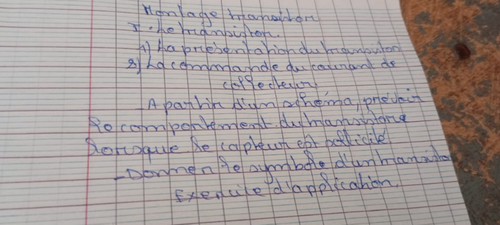 Montage transistor
I. Le transistor.
1) La présentation du transistor
2) La commande du courant de
collecteur
- A partir d'un schéma, prévoir
le comportement du transistore
lorsque le capteur est sollicité
- Donner le symbole d'un transistor
Exercice d'application.